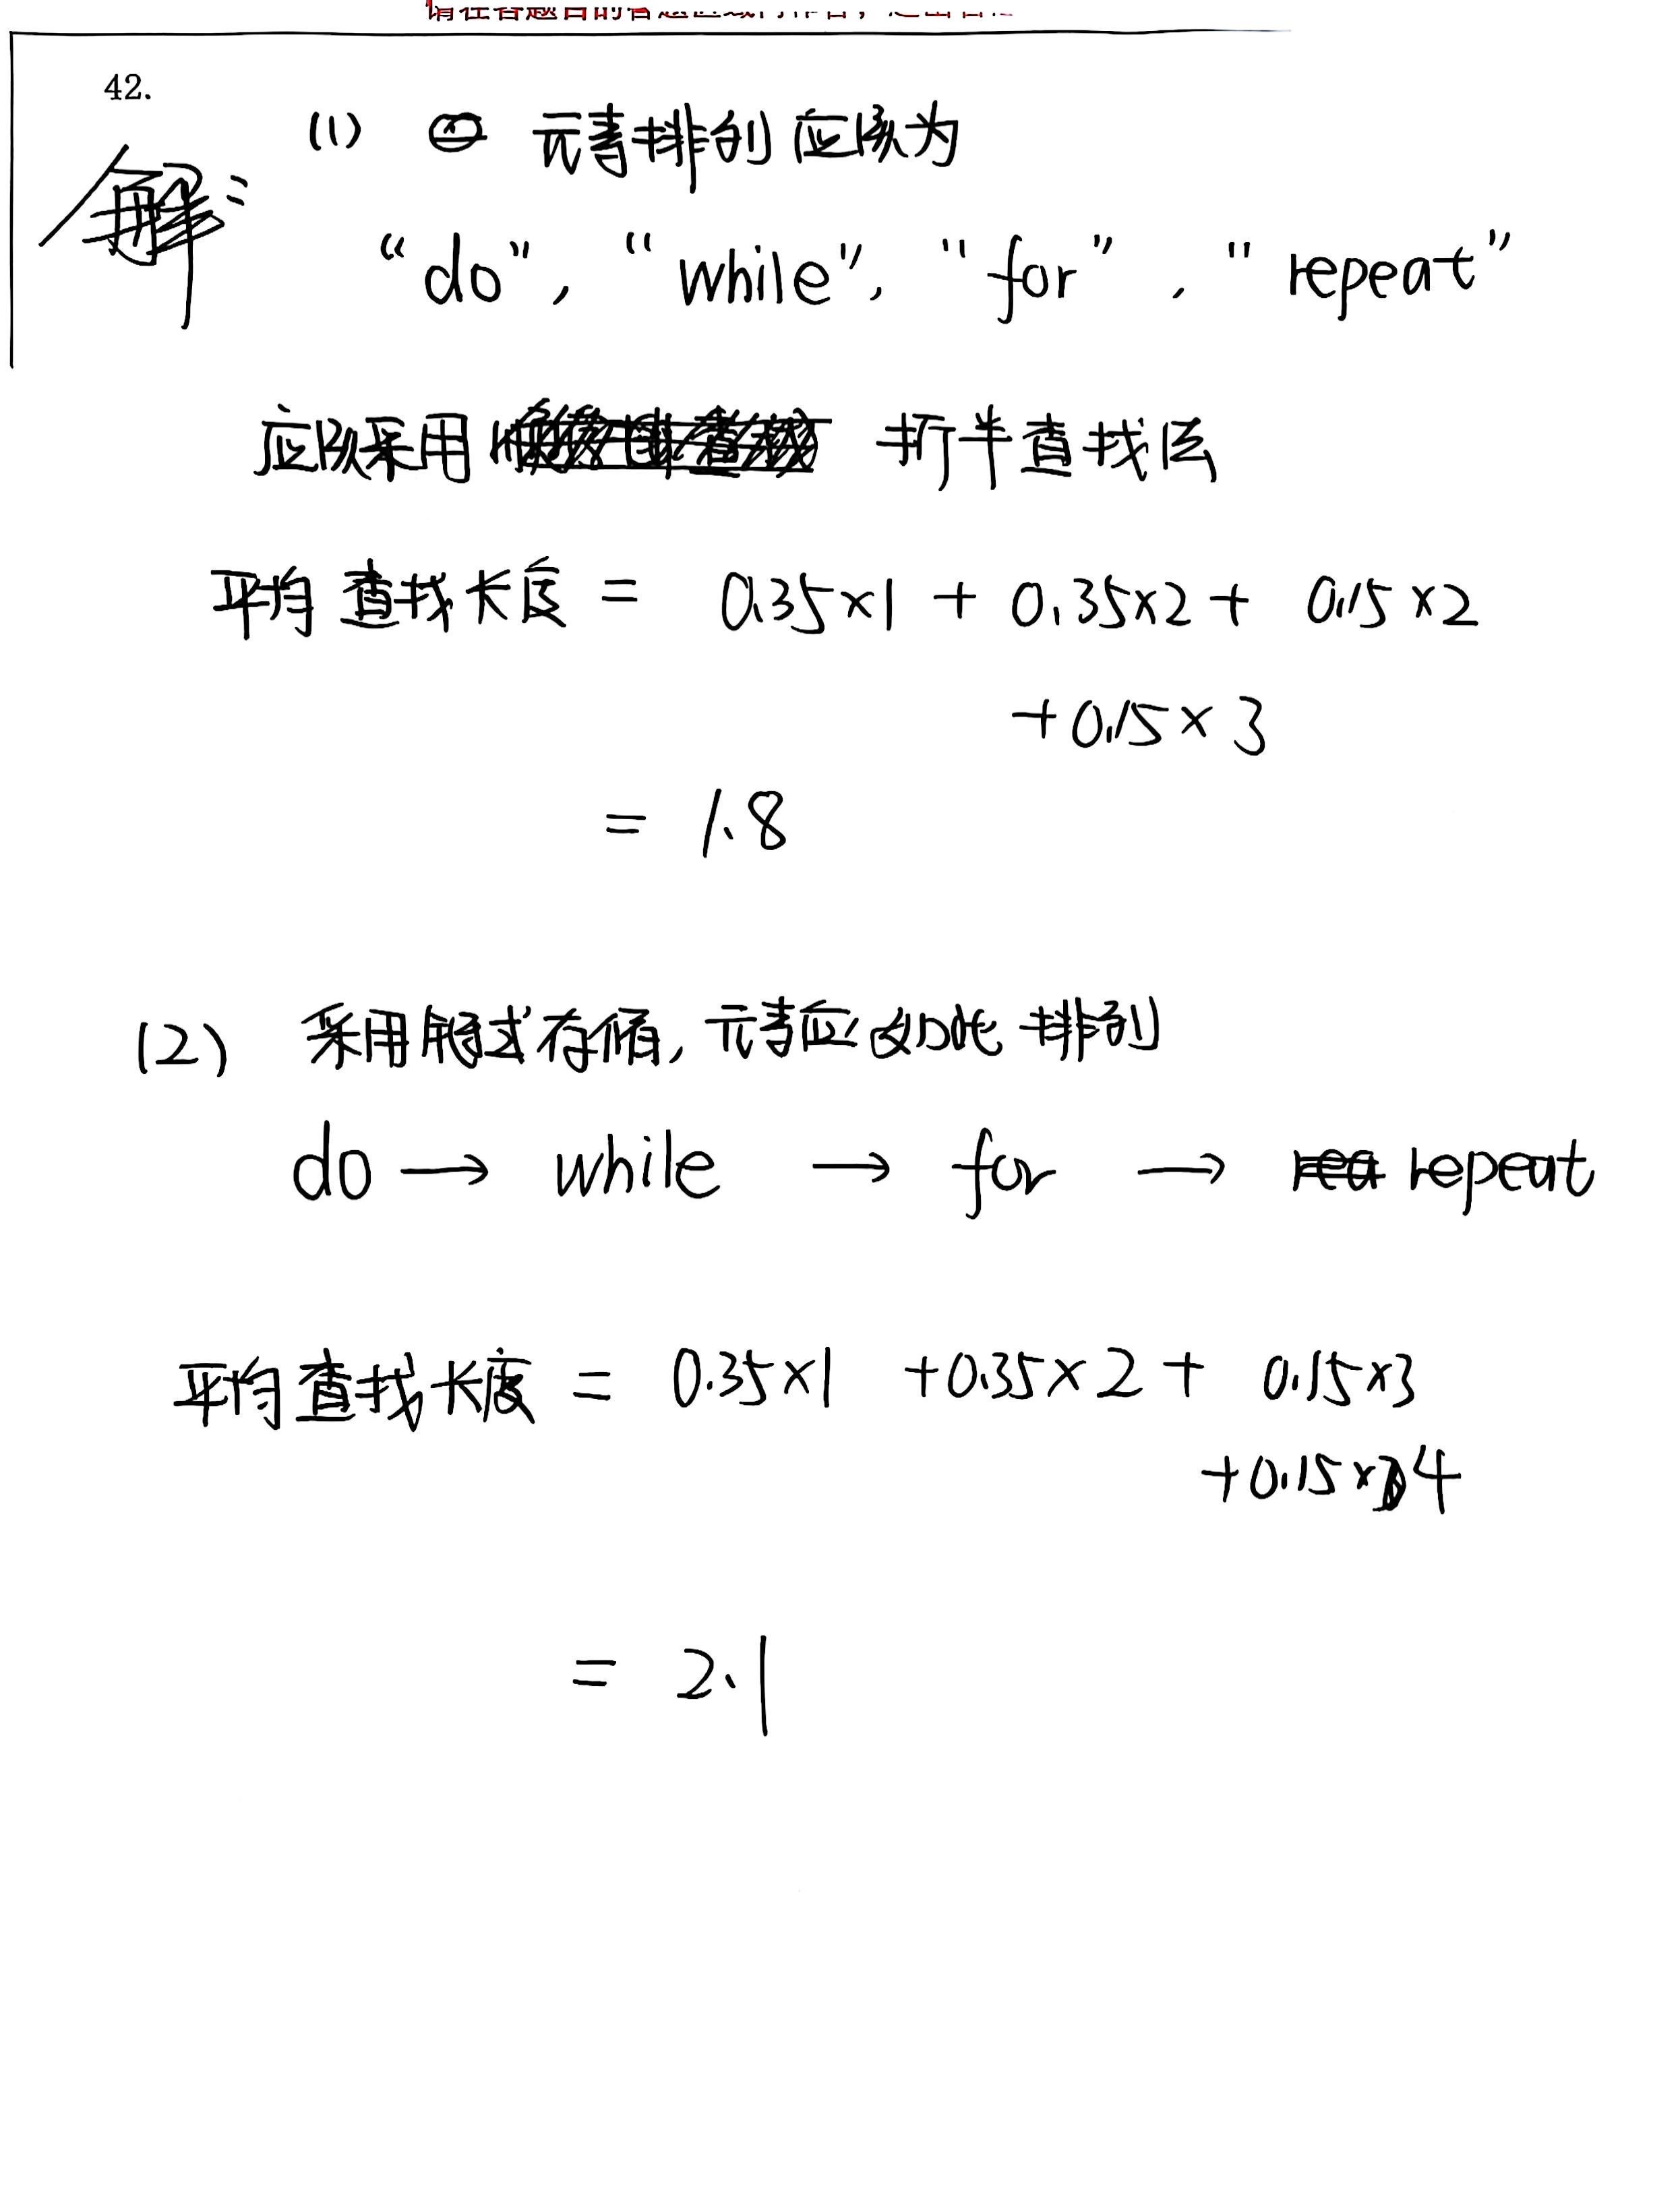 42.
解:
(1) 元素排列应该为
“do”, “while”, “for”, “repeat”
应该采用 折半查找法
平均查找长度 = 0.35×1 + 0.35×2 + 0.15×2
+0.15×3
= 1.8
(2) 采用链式存储,元素应如此排列
do → while → for → repeat
平均查找长度 = 0.35×1 +0.35×2 + 0.15×3
+0.15×4
= 2.1